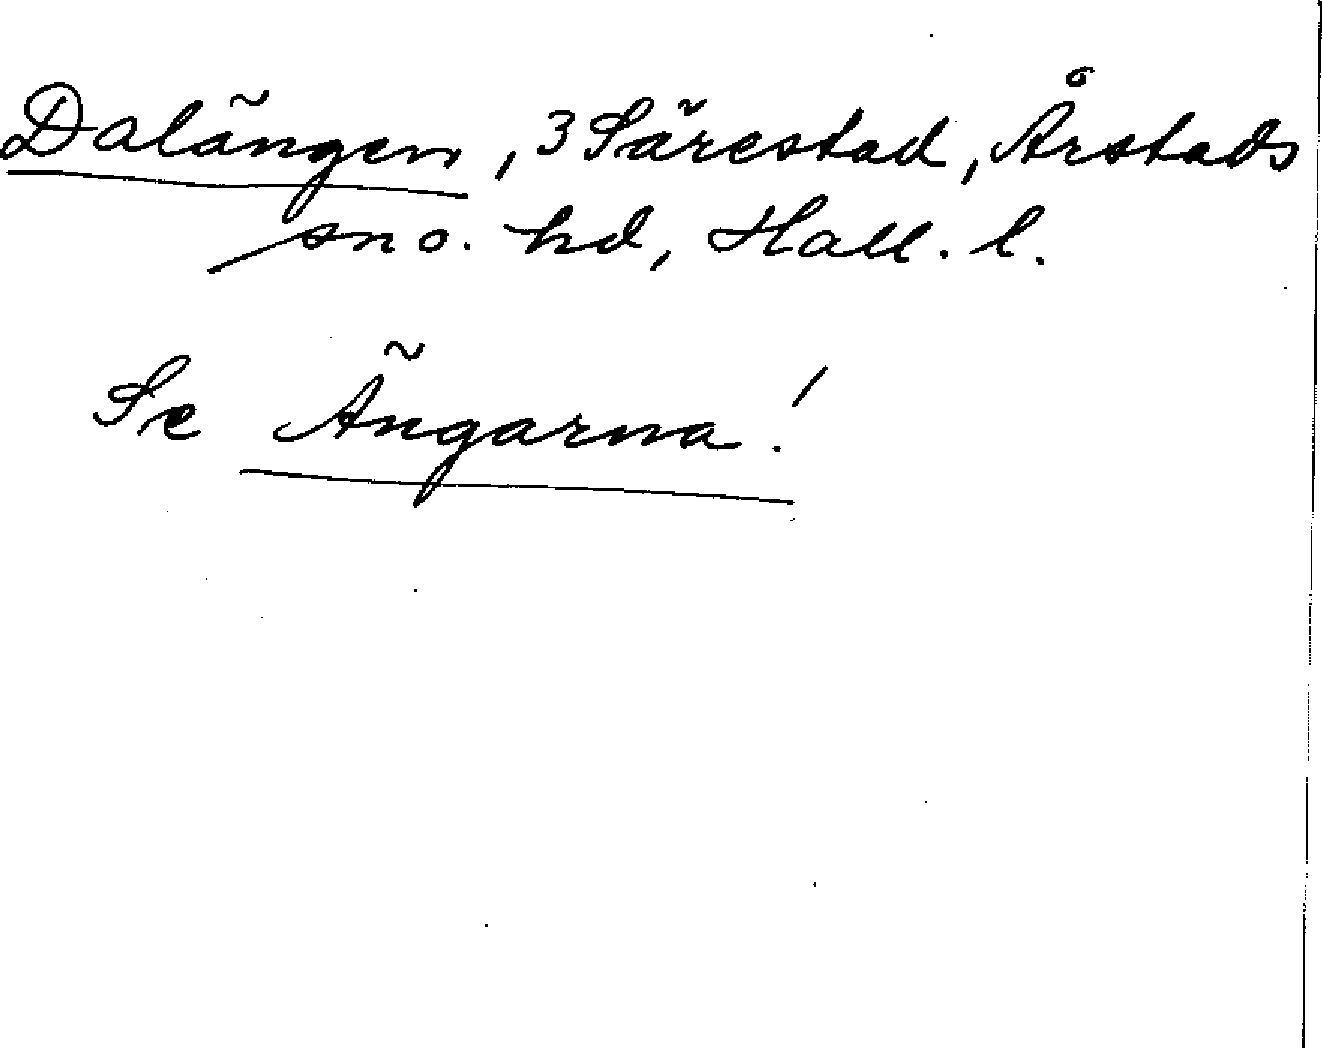 Dalängen, 3 Särestad, Årstads
sn o. hd, Hall. l.
Se Ängarna!